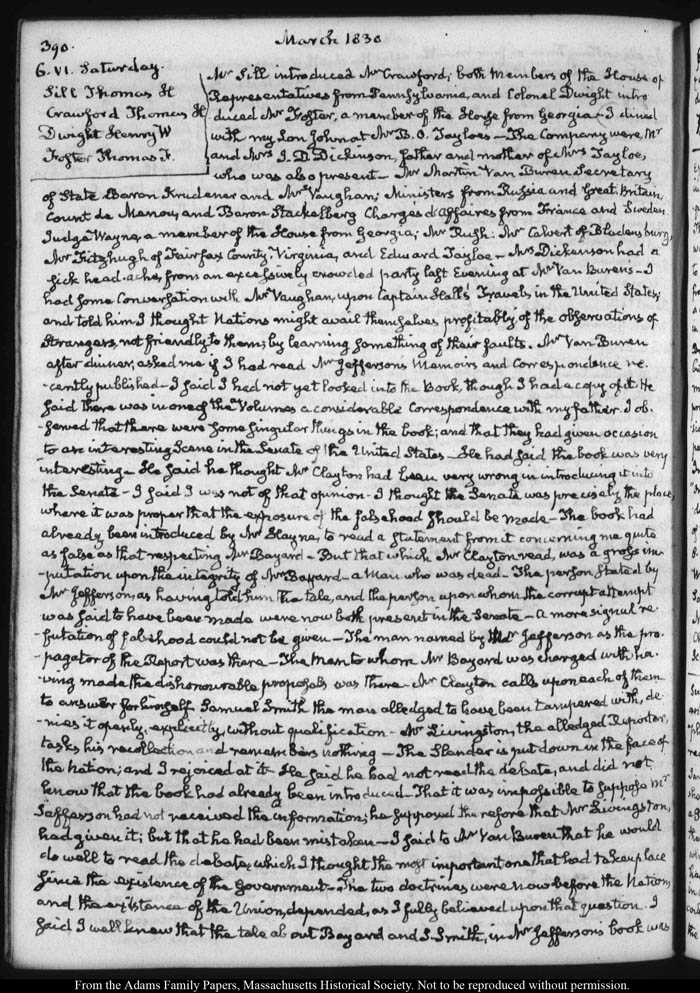 390.
March 1830
6. VI. Saturday.
Sill Thomas H
Crawford Thomas H
Dwight Henry W
Foster Thomas F.
Mr Sill introduced Mr Crawford; both members of the House of
Representatives from Pennsylvania, and Colonel Dwight intro
duced Mr Foster, a member of the House from Georgia — I dined
with my Son John at Mr B. O. Tayloes — The Company were, Mr
and Mrs J. D. Dickinson, father and mother of Mrs Tayloe,
who was also present — Mr Martin Van Buren Secretary
of State Baron Krudener and Mr Vaughan, Ministers from Russia and Great-Britain,
Count de Menou, and Baron Stackelberg Chargés d'Affaires from France and Sweden
Judge Wayne, a member of the House from Georgia; Mr Rush: Mr Calvert of Bladensburg,
Mr Fitzhugh of Fairfax County Virginia, and Edward Tayloe — Mrs Dickenson had a
sick head-ache, from an excessively crowded party last Evening at Mr Van Burens — I
had some Conversation with Mr Vaughan, upon Captain Hall's Travels in the United States;
and told him I thought Nations might avail themselves profitably of the observations of
Strangers, not friendly to them; by learning something of their faults. Mr Van Buren
after dinner, asked me if I had read Mr Jefferson's Memoirs and Correspondence re-
-cently published — I said I had not yet looked into the Book, though I had a copy of it. He
said there was in one of the Volumes a considerable Correspondence with my father. I ob-
-served that there were some singular things in the book; and that they had given occasion
to an interesting Scene in the Senate of the United States — He had said the book was very
interesting — He said he thought Mr Clayton had been very wrong in introducing it into
the Senate — I said I was not of that opinion — I thought the Senate was precisely the place,
where it was proper that the exposure of the falsehood should be made — The book had
already been introduced by Mr Hayne, to read a Statement from it concerning me quite
as false as that respecting Mr Bayard — But that which Mr Clayton read, was a gross im-
-putation upon the integrity of Mr Bayard — a Man who was dead — The person stated by
Mr Jefferson, as having told him the tale, and the person upon whom the corrupt attempt
was said to have been made were now both present in the Senate — a more signal re-
-futation of falsehood could not be given — The man named by Mr Jefferson as the pro-
-pagator of the Report was there — The Man to whom Mr Bayard was charged with ha-
-ving made the dishonourable proposals was there. Mr Clayton calls upon each of them
to answer for himself. Samuel Smith the man alledged to have been tampered with, de-
-nies it openly, explicitly, without qualification — Mr Livingston, the alledged Reporter,
tasks his recollection and remembers nothing — The Slander is put down in the face of
the Nation; and I rejoiced at it — He said he had not read the debate, and did not
know that the book had already been introduced — That it was impossible to suppose Mr
Jefferson had not received the information; he supposed therefore that Mr Livingston,
had given it; but that he had been mistaken — I said to Mr Van Buren that he would
do well to read the debate, which I thought the most important one that had taken place
since the existence of the Government — The two doctrines were now before the Nation,
and the existence of the Union, depended, as I fully believed upon that question. I
said I well knew that the tale about Bayard and S. Smith, in Mr Jefferson's book was
From the Adams Family Papers, Massachusetts Historical Society. Not to be reproduced without permission.